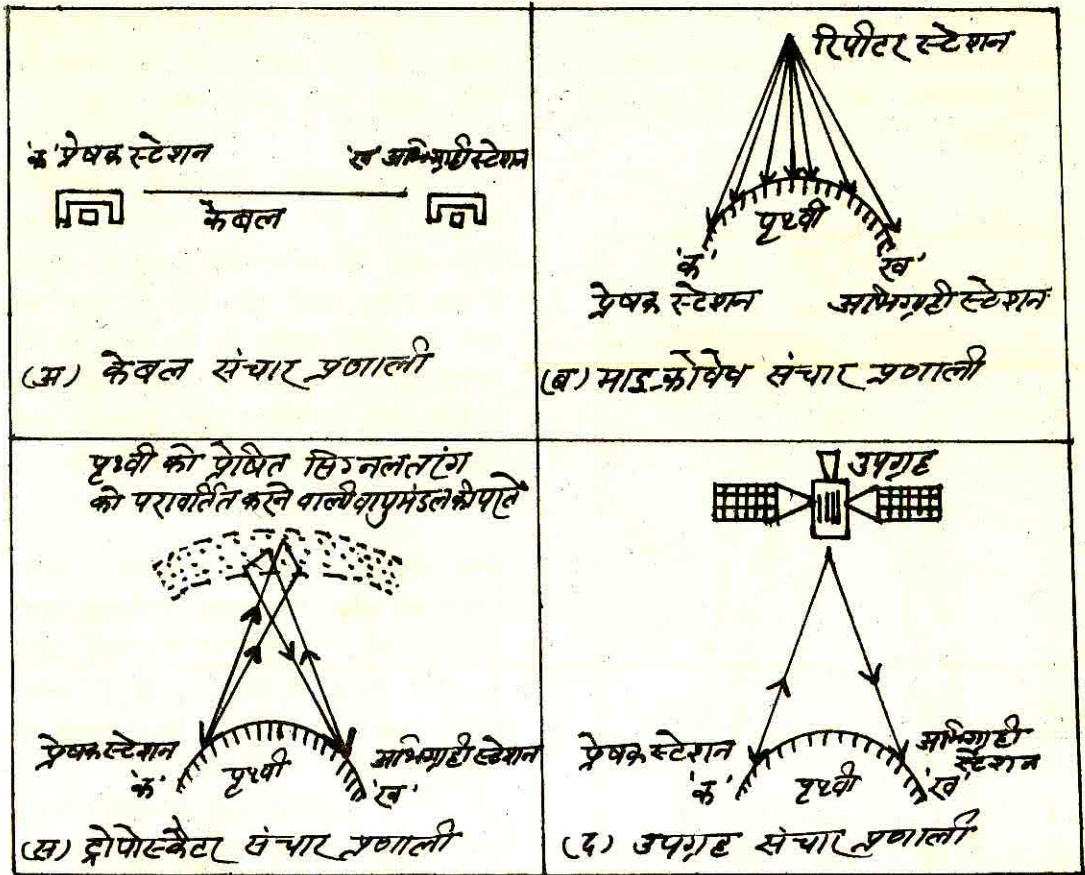 'क' प्रेषक स्टेशन
'ख' अभिग्राही स्टेशन
केबल
(अ) केबल संचार प्रणाली
रिपीटर स्टेशन
पृथ्वी
'क'
'ख'
प्रेषक स्टेशन
अभिग्राही स्टेशन
(ब) माइक्रोवेव संचार प्रणाली
पृथ्वी को प्रेषित सिग्नल तरंग
को परावर्तित करने वाली वायुमंडल की पर्तें
प्रेषक स्टेशन
'क'
पृथ्वी
अभिग्राही स्टेशन
'ख'
(स) ट्रोपोस्कैटर संचार प्रणाली
उपग्रह
प्रेषक स्टेशन
'क'
पृथ्वी
अभिग्राही
स्टेशन
'ख'
(द) उपग्रह संचार प्रणाली